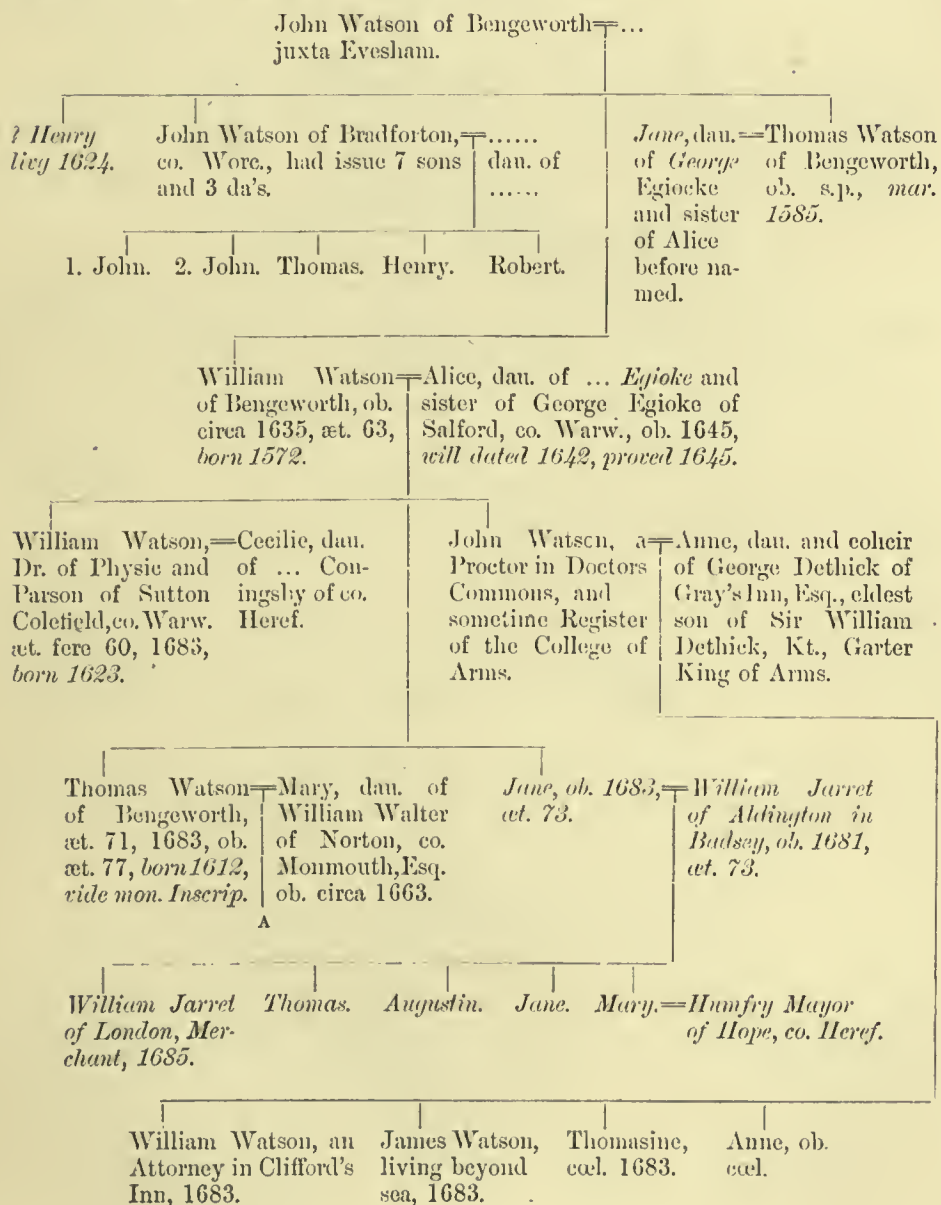 John Watson of Bengeworth=...
juxta Evesham.
? Henry
livg 1624.
John Watson of Bradforton,=......
co. Worc., had issue 7 sons
and 3 da's.
dau. of
......
Jane, dau.=Thomas Watson
of George
Egiocke
and sister
of Alice
before na-
med.
of Bengeworth,
ob. s.p., mar.
1585.
1. John. 2. John. Thomas. Henry. Robert.
William Watson=Alice, dau. of ... Egioke and
of Bengeworth, ob.
circa 1635, æt. 63,
born 1572.
sister of George Egioke of
Salford, co. Warw., ob. 1645,
will dated 1642, proved 1645.
William Watson,=Cecilie, dau.
Dr. of Physic and
Parson of Sutton
Colefield, co. Warw.
æt. fere 60, 1683,
born 1623.
of ... Con-
ingsby of co.
Heref.
John Watson, a=Anne, dau. and coheir
Proctor in Doctors
Commons, and
sometime Register
of the College of
Arms.
of George Dethick of
Gray's Inn, Esq., eldest
son of Sir William
Dethick, Kt., Garter
King of Arms.
Thomas Watson=Mary, dau. of
of Bengeworth,
æt. 71, 1683, ob.
æt. 77, born 1612,
vide mon. Inscrip.
William Walter
of Norton, co.
Monmouth, Esq.
ob. circa 1663.
A
Jane, ob. 1683,=William Jarret
æt. 73.
of Aldington in
Badsey, ob. 1681,
æt. 73.
William Jarret
of London, Mer-
chant, 1685.
Thomas. Augustin. Jane. Mary.=Humfry Mayor
of Hope, co. Heref.
William Watson, an
Attorney in Clifford's
Inn, 1683.
James Watson,
living beyond
sea, 1683.
Thomasine,
cœl. 1683.
Anne, ob.
cœl.